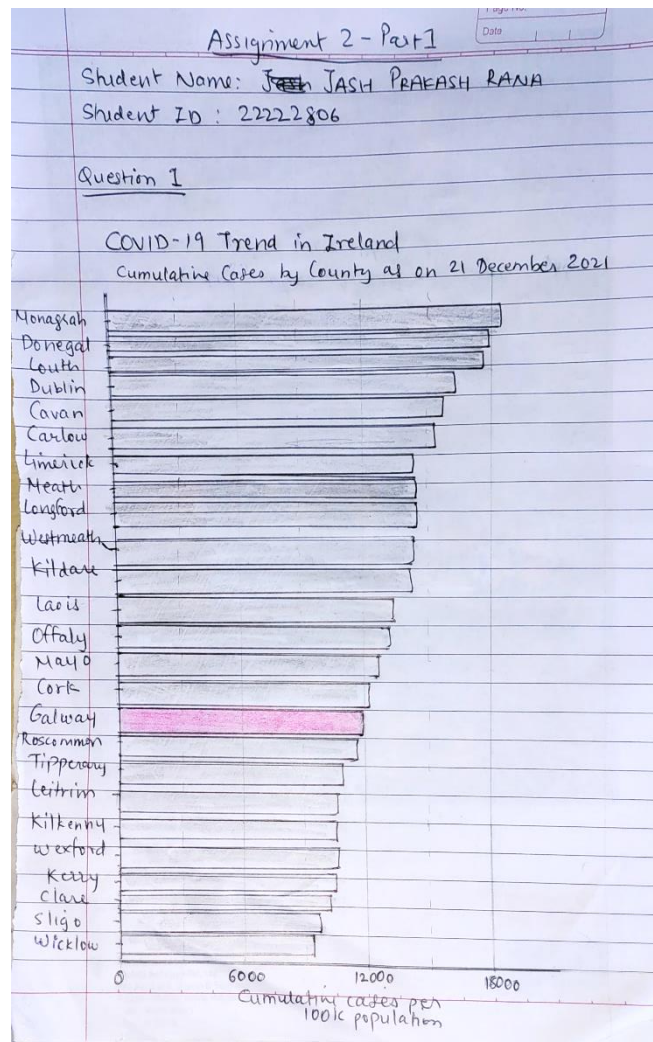 Page No.
Date
Assignment 2 - Part 1
Student Name: JASH PRAKASH RANA
Student ID : 22222806
Question 1
COVID-19 Trend in Ireland
Cumulative Cases by County as on 21 December 2021
Monaghah
Donegal
Louth
Dublin
Cavan
Carlow
Limerick
Meath
Longford
Westmeath
Kildare
Laois
Offaly
Mayo
Cork
Galway
Roscommon
Tipperary
Leitrim
Kilkenny
Wexford
Kerry
Clare
Sligo
Wicklow
0 6000 12000 18000
Cumulative cases per
100k population